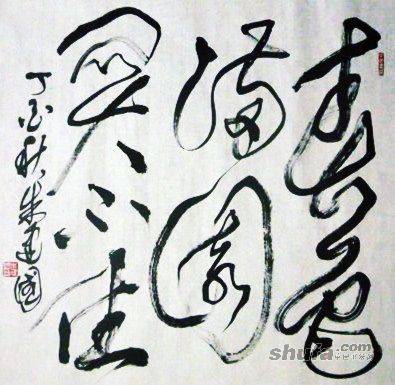 春色
滿園
關不住
丁酉秋朱建國
shufa.com